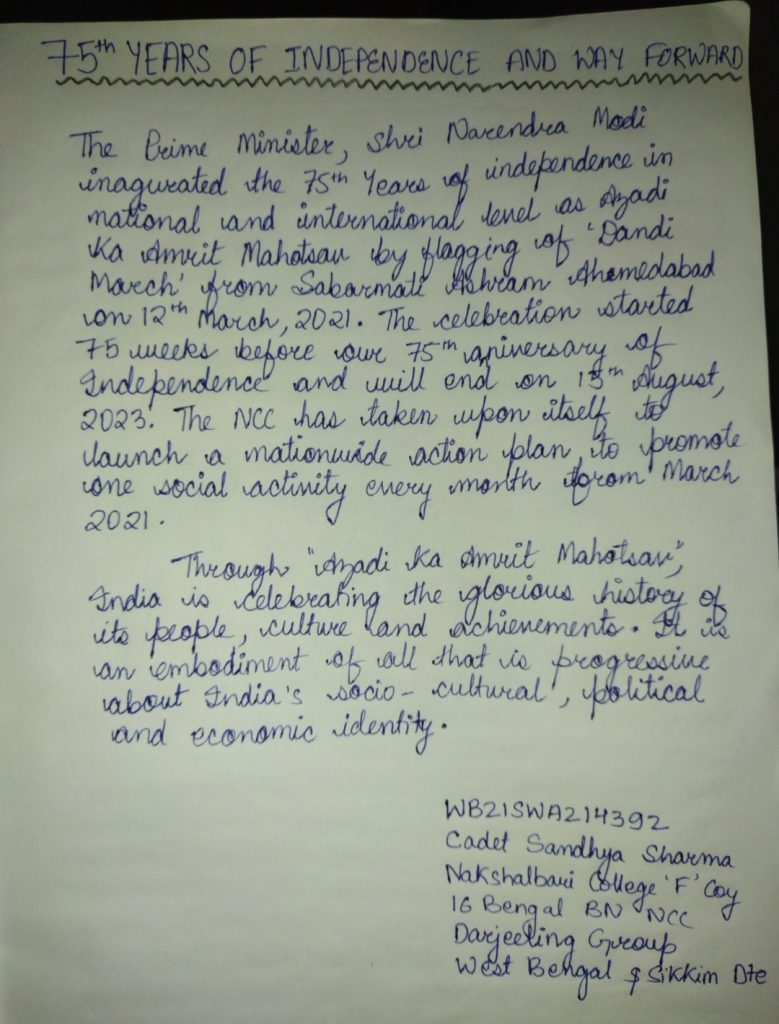 75th YEARS OF INDEPENDENCE AND WAY FORWARD
The Prime Minister, Shri Narendra Modi
inagurated the 75th Years of independence in
national and international level as Azadi
Ka Amrit Mahotsav by flagging of 'Dandi
March' from Sabarmati Ashram Ahamedabad
on 12th March, 2021. The celebration started
75 weeks before our 75th anniversary of
Independence and will end on 15th August,
2023. The NCC has taken upon itself to
launch a nationwide action plan, to promote
one social activity every month from March
2021.
Through "Azadi Ka Amrit Mahotsav",
India is celebrating the glorious history of
its people, culture and achievements. It is
an embodiment of all that is progressive
about India's socio-cultural, political
and economic identity.
WB21SWA214392
Cadet Sandhya Sharma
Nakshalbari College 'F' Coy
16 Bengal BN NCC
Darjeeling Group
West Bengal & Sikkim Dte